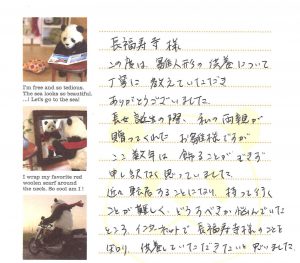 長福寿寺 様
この度は、雛人形の供養について
丁寧に 教えていただき
ありがとうございました。
長女誕生の際、私の両親が
贈ってくれた お雛様ですが
ここ数年は 飾ることができず
申し訳なく思っていました。
近々 転居することになり、持っていく
ことが難しく、どうすべきか悩んでいた
ところ、インターネットで 長福寿寺様のことを
知り、供養していただきたいと思いました。
I'm free and so tedious.
The sea looks so beautiful.
..! Let's go to the sea!
I wrap my favorite red
woolen scarf around
the neck. So cool am I !